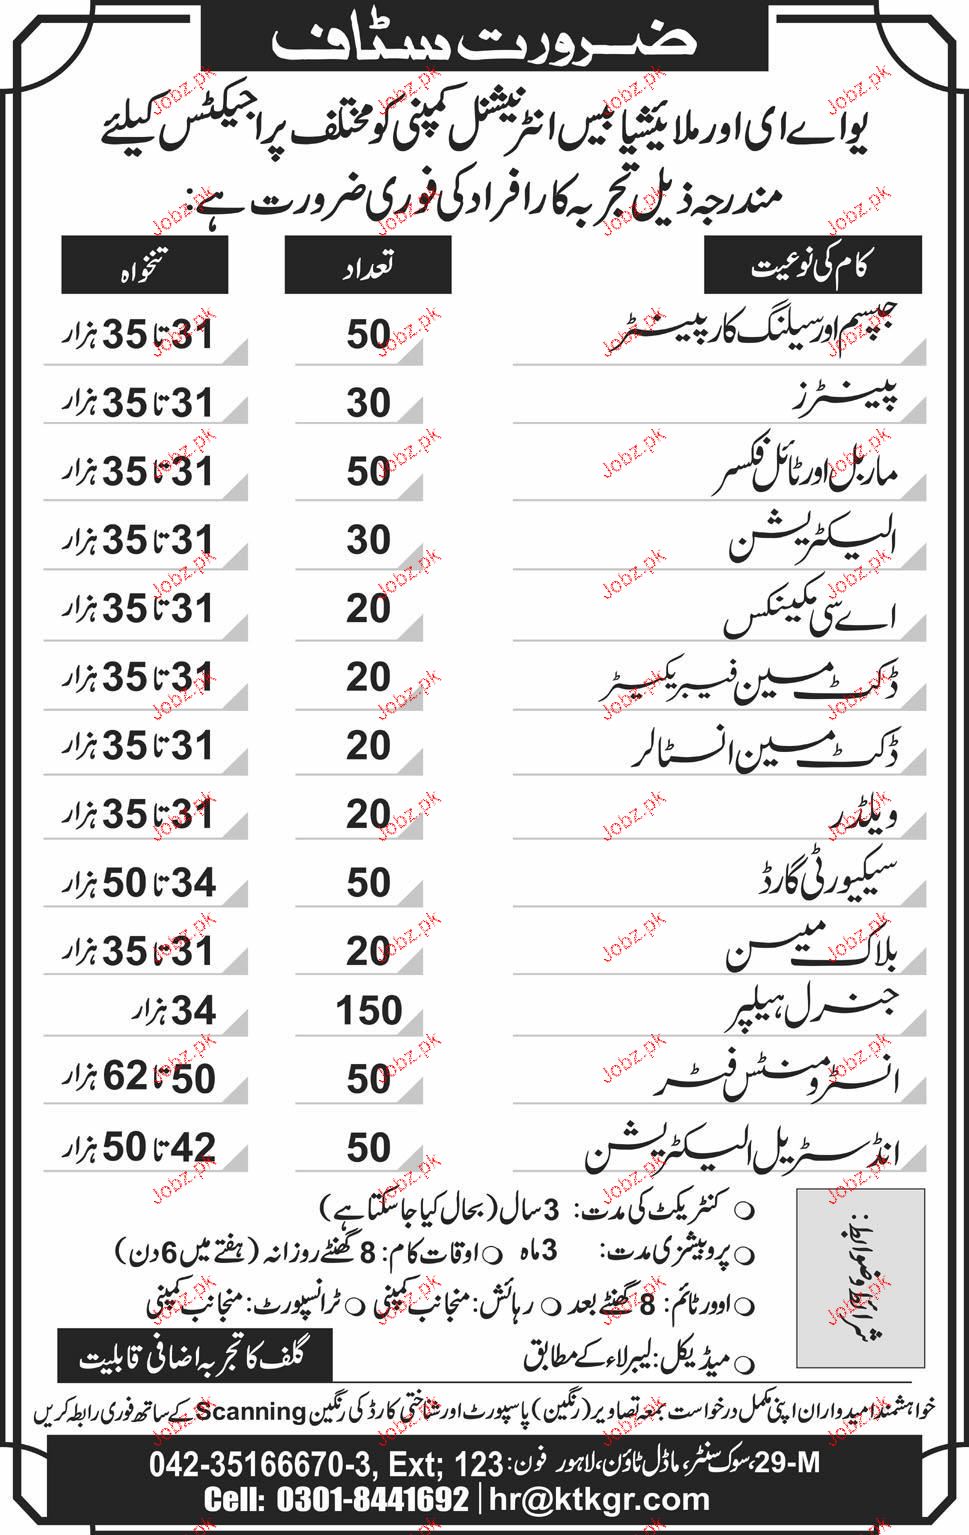 ضرورت سٹاف
یو اے ای اور ملائیشیا بیس انٹرنیشنل کمپنی کو مختلف پراجیکٹس کیلئے
مندرجہ ذیل تجربہ کار افراد کی فوری ضرورت ہے:
کام کی نوعیت تعداد تنخواہ
جپسم اور سیلنگ کارپینٹر 50 31 تا 35 ہزار
پینٹرز 30 31 تا 35 ہزار
ماربل اور ٹائل فکسر 50 31 تا 35 ہزار
الیکٹریشن 30 31 تا 35 ہزار
اے سی مکینکس 20 31 تا 35 ہزار
ڈکٹ مین فیبریکیٹر 20 31 تا 35 ہزار
ڈکٹ مین انسٹالر 20 31 تا 35 ہزار
ویلڈر 20 31 تا 35 ہزار
سیکیورٹی گارڈ 50 34 تا 50 ہزار
بلاک میسن 20 31 تا 35 ہزار
جنرل ہیلپر 150 34 ہزار
انسٹرومنٹس فٹر 50 50 تا 62 ہزار
انڈسٹریل الیکٹریشن 50 42 تا 50 ہزار
شرائط و ضوابط:
کنٹریکٹ کی مدت: 3 سال (بحال کیا جا سکتا ہے)
پروبیشنری مدت: 3 ماہ اوقات کام: 8 گھنٹے روزانہ (ہفتے میں 6 دن)
اوور ٹائم: 8 گھنٹے بعد رہائش: منجانب کمپنی ٹرانسپورٹ: منجانب کمپنی
میڈیکل: لیبر لاء کے مطابق گلف کا تجربہ اضافی قابلیت
خواہشمند امیدواران اپنی مکمل درخواست بمعہ تصاویر (رنگین) پاسپورٹ اور شناختی کارڈ کی رنگین Scanning کے ساتھ فوری رابطہ کریں
29-M، سوک سنٹر، ماڈل ٹاؤن، لاہور فون: 042-35166670-3, Ext; 123
Cell: 0301-8441692 | hr@ktkgr.com